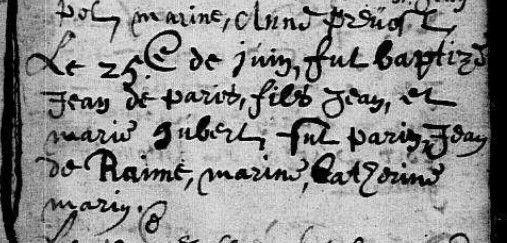 pol, marine, Anne prevost,
Le 25.e de juin, fut baptizé
Jean de paris, fils Jean, et
marie hubert, fut parin, Jean
de Raime, marine, Catherine
marin.